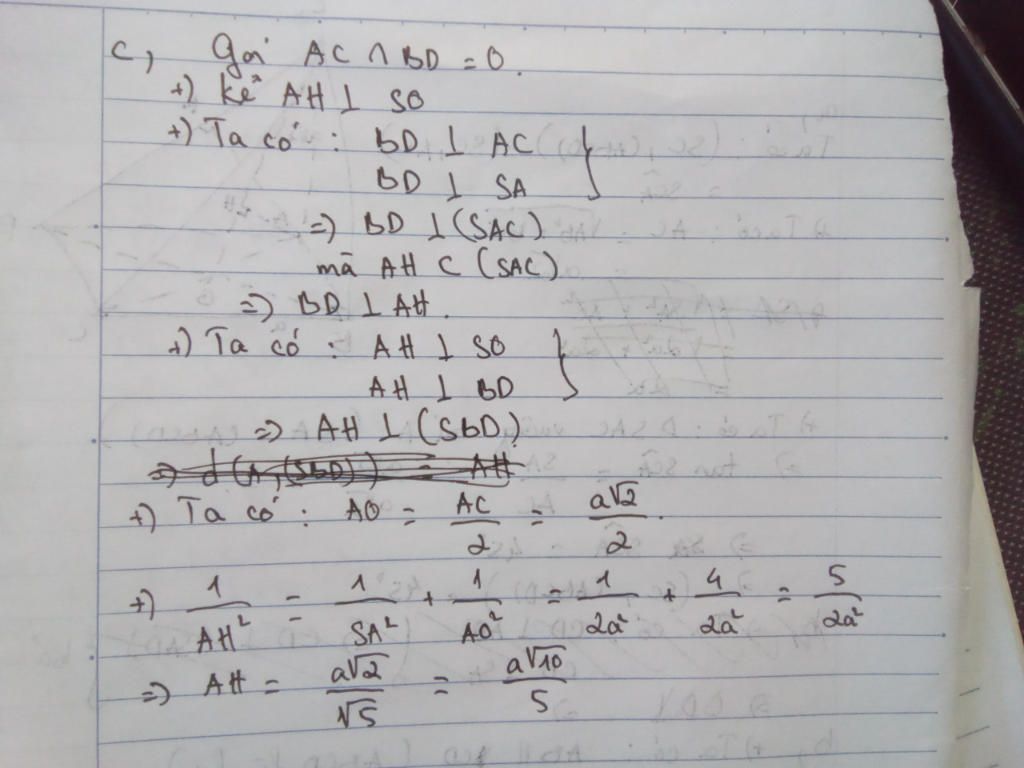 c, Gọi AC ∩ BD = O.
+) kẻ AH ⊥ SO
+) Ta có : BD ⊥ AC }
BD ⊥ SA
=> BD ⊥ (SAC)
mà AH ⊂ (SAC)
=> BD ⊥ AH.
+) Ta có : AH ⊥ SO }
AH ⊥ BD
=> AH ⊥ (SBD)
=> d (A, (SBD)) = AH
+) Ta có : AO = AC/2 = a√2/2.
+) 1/AH² = 1/SA² + 1/AO² = 1/2a² + 4/2a² = 5/2a²
=> AH = a√2/√5 = a√10/5